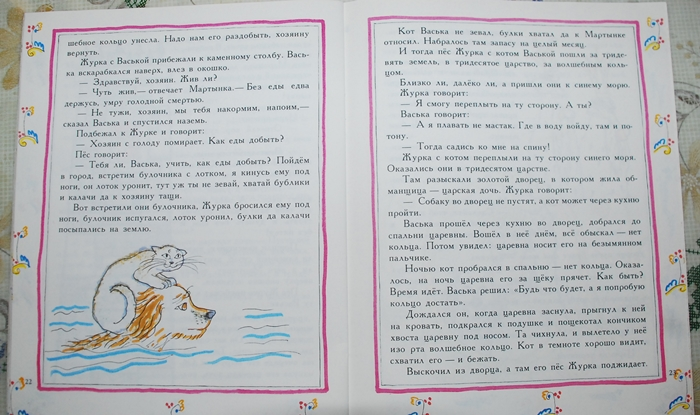 шебное кольцо унесла. Надо нам его раздобыть, хозяину
вернуть.
Журка с Васькой прибежали к каменному столбу. Вась-
ка вскарабкался наверх, влез в окошко.
— Здравствуй, хозяин. Жив ли?
— Чуть жив,— отвечает Мартынка.— Без еды едва
держусь, умру голодной смертью.
— Не тужи, хозяин, мы тебя накормим, напоим,—
сказал Васька и спустился наземь.
Подбежал к Журке и говорит:
— Хозяин с голоду помирает. Как еды добыть?
Пёс говорит:
— Тебя ли, Васька, учить, как еды добыть? Пойдём
в город, встретим булочника с лотком, я кинусь ему под
ноги, он лоток уронит, тут уж ты не зевай, хватай бублики
и калачи да к хозяину тащи.
Вот встретили они булочника, Журка бросился ему под
ноги, булочник испугался, лоток уронил, булки да калачи
посыпались на землю.
22
Кот Васька не зевал, булки хватал да к Мартынке
относил. Набралось там запасу на целый месяц.
И тогда пёс Журка с котом Васькой пошли за триде-
вять земель, в тридесятое царство, за волшебным коль-
цом.
Близко ли, далёко ли, а пришли они к синему морю.
Журка говорит:
— Я смогу переплыть на ту сторону. А ты?
Васька говорит:
— А я плавать не мастак. Где в воду войду, там и по-
тону.
— Тогда садись ко мне на спину!
Журка с котом переплыли на ту сторону синего моря.
Оказались они в тридесятом царстве.
Там разыскали золотой дворец, в котором жила об-
манщица — царская дочь. Журка говорит:
— Собаку во дворец не пустят, а кот может через кухню
пройти.
Васька прошёл через кухню во дворец, добрался до
спальни царевны. Вошёл в неё днём, всё обыскал — нет
кольца. Потом увидел: царевна носит его на безымянном
пальчике.
Ночью кот пробрался в спальню — нет кольца. Оказа-
лось, на ночь царевна его за щёку прячет. Как быть?
Время идёт. Васька решил: «Будь что будет, а я попробую
кольцо достать».
Дождался он, когда царевна заснула, прыгнул к ней
на кровать, подкрался к подушке и пощекотал кончиком
хвоста царевну под носом. Та чихнула, и вылетело у неё
изо рта волшебное кольцо. Кот в темноте хорошо видит,
схватил его — и бежать.
Выскочил из дворца, а там его пёс Журка поджидает.